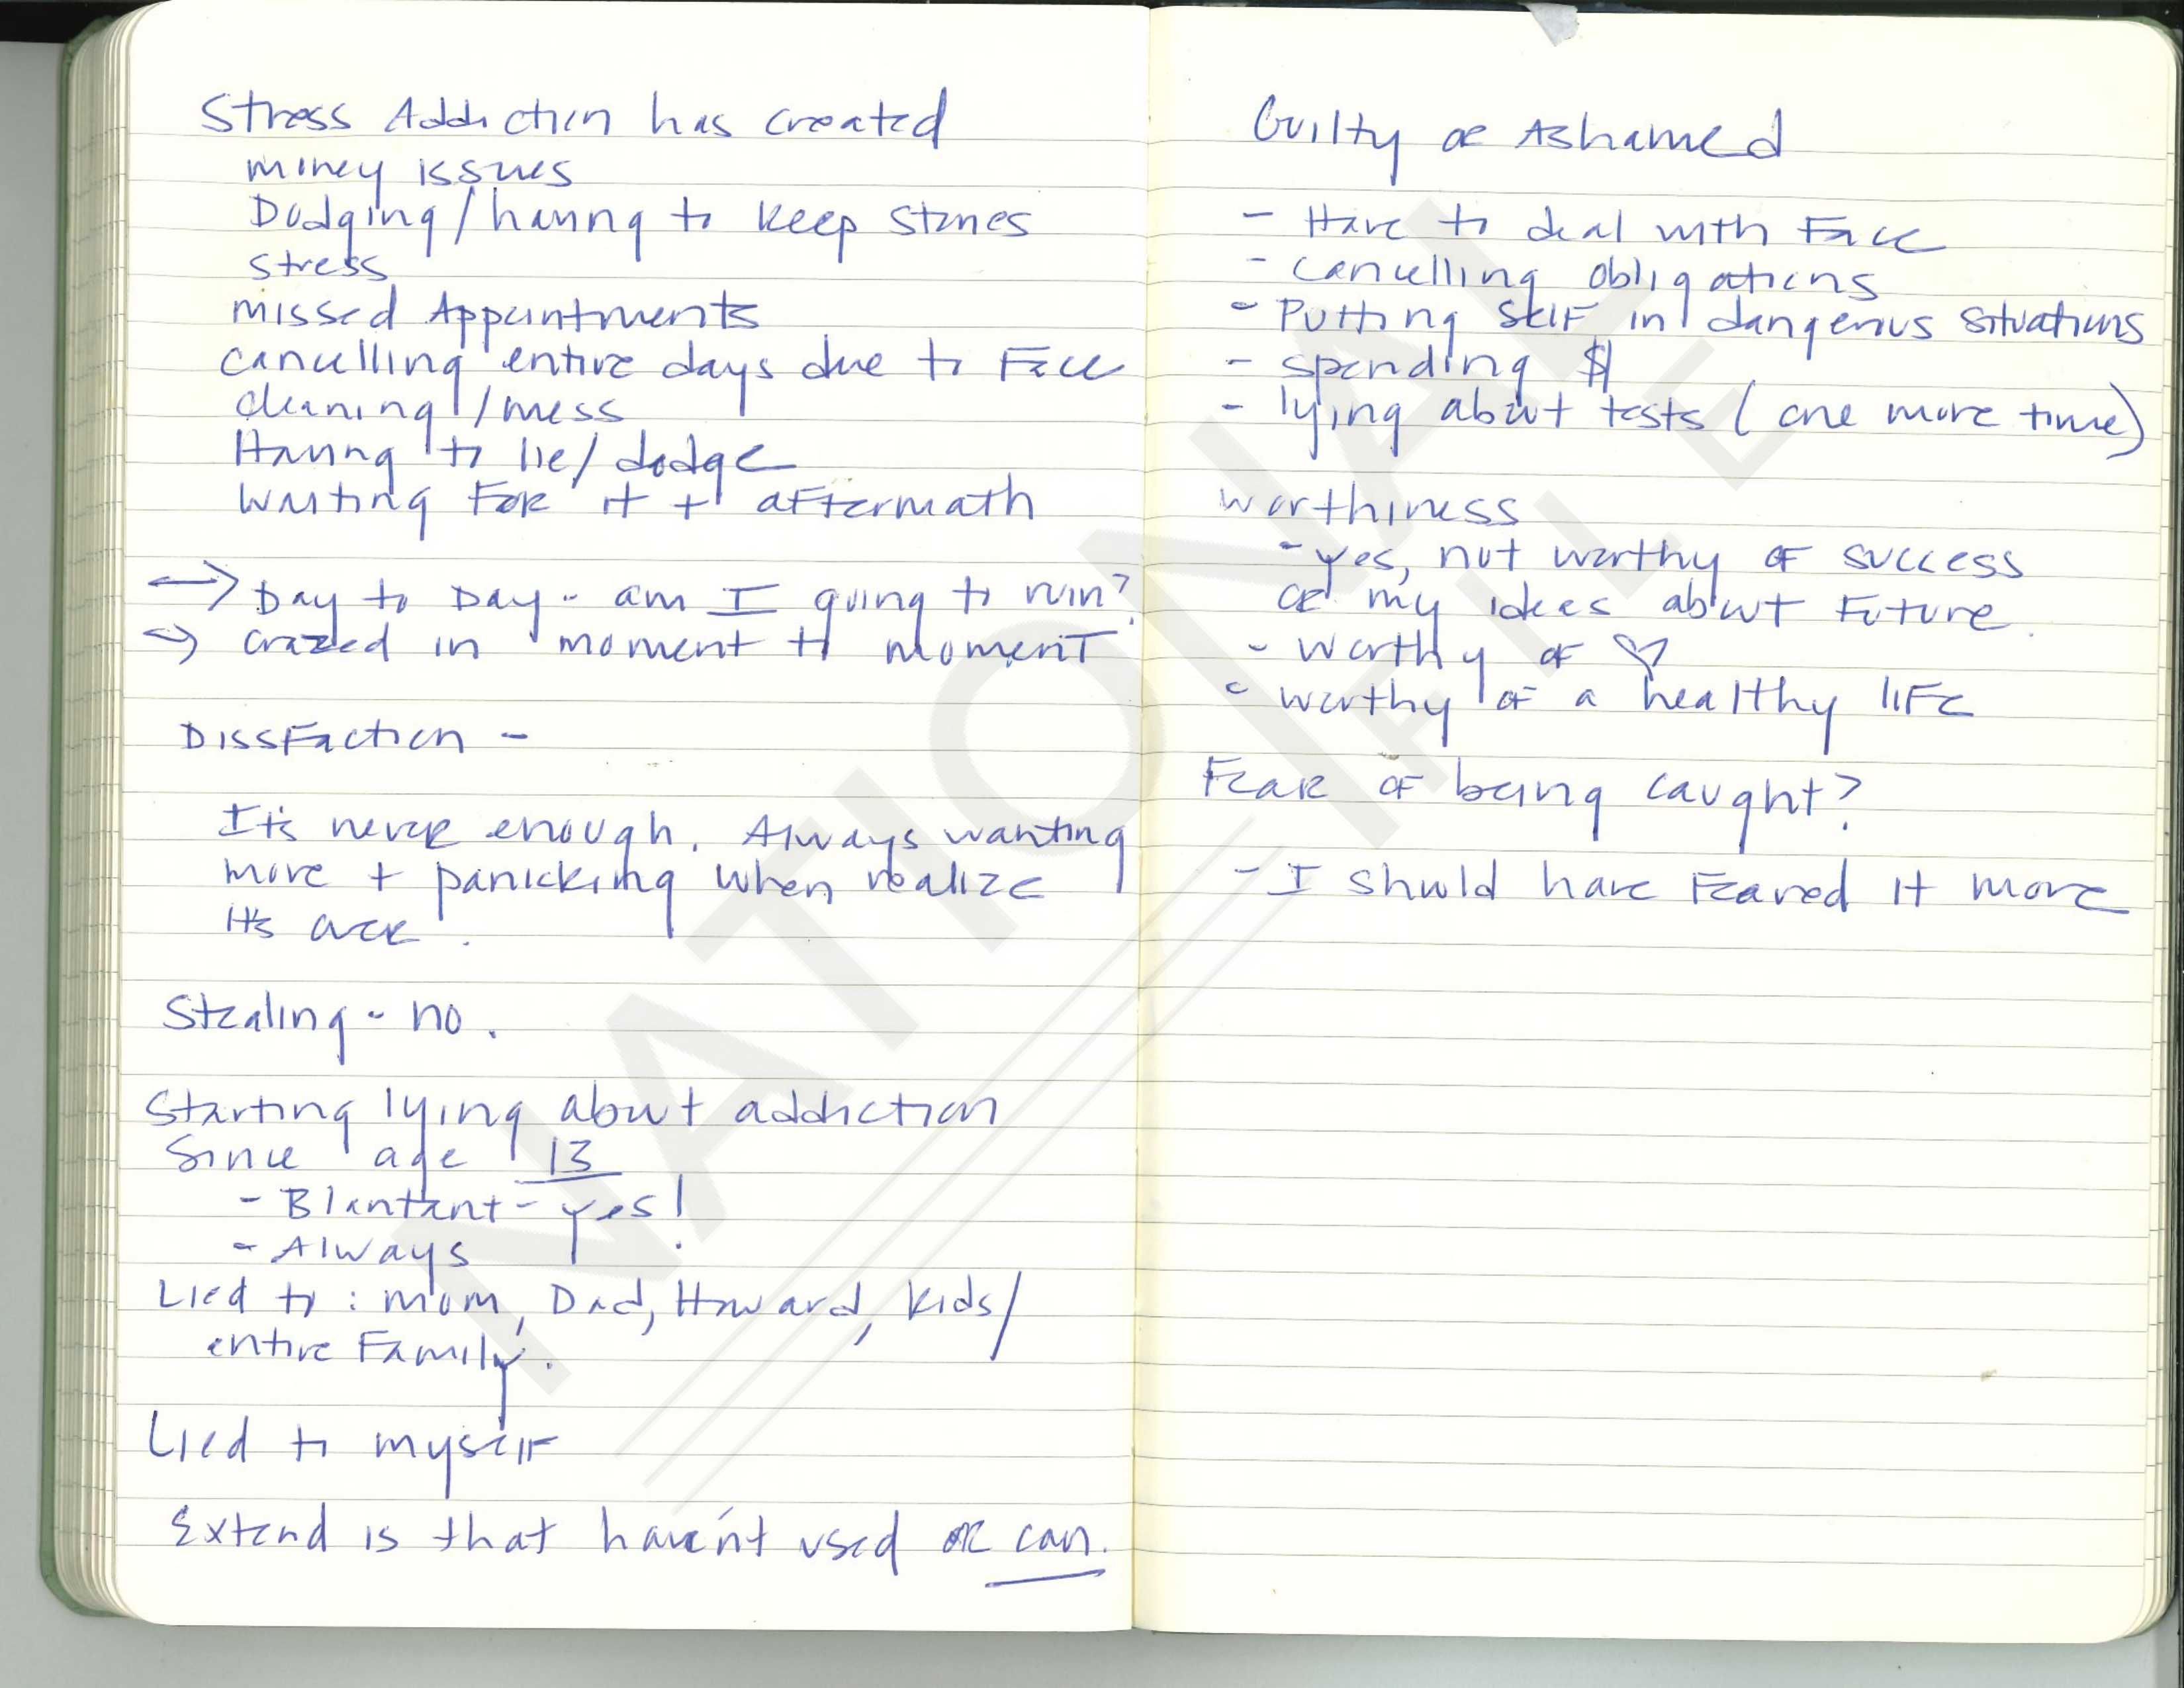 Stress Addiction has created
money issues
Dodging/having to keep stories
stress
missed Appointments
cancelling entire days due to Face
cleaning/mess
Having to lie/dodge
waiting For it + aftermath
→ Day to Day - am I going to ruin?
→ crazed in moment to moment
Dissfaction -
It's never enough. Always wanting
more + panicking when realize
it's over.
Stealing - no.
Starting lying about addiction
Since age 13
- Blantant - yes!
- Always
Lied to: mom, Dad, Howard, kids/
entire Family.
Lied to myself
Extend is that haven't used or can.
Guilty or Ashamed
- Have to deal with Face
- cancelling obligations
- Putting self in dangerous situations
- spending $
- lying about tests (one more time)
worthiness
- yes, not worthy of success
or my idees about Future.
- worthy of ♡
- worthy of a healthy life
Fear of being caught?
- I should have Feared it more
NATIONAL
FILE